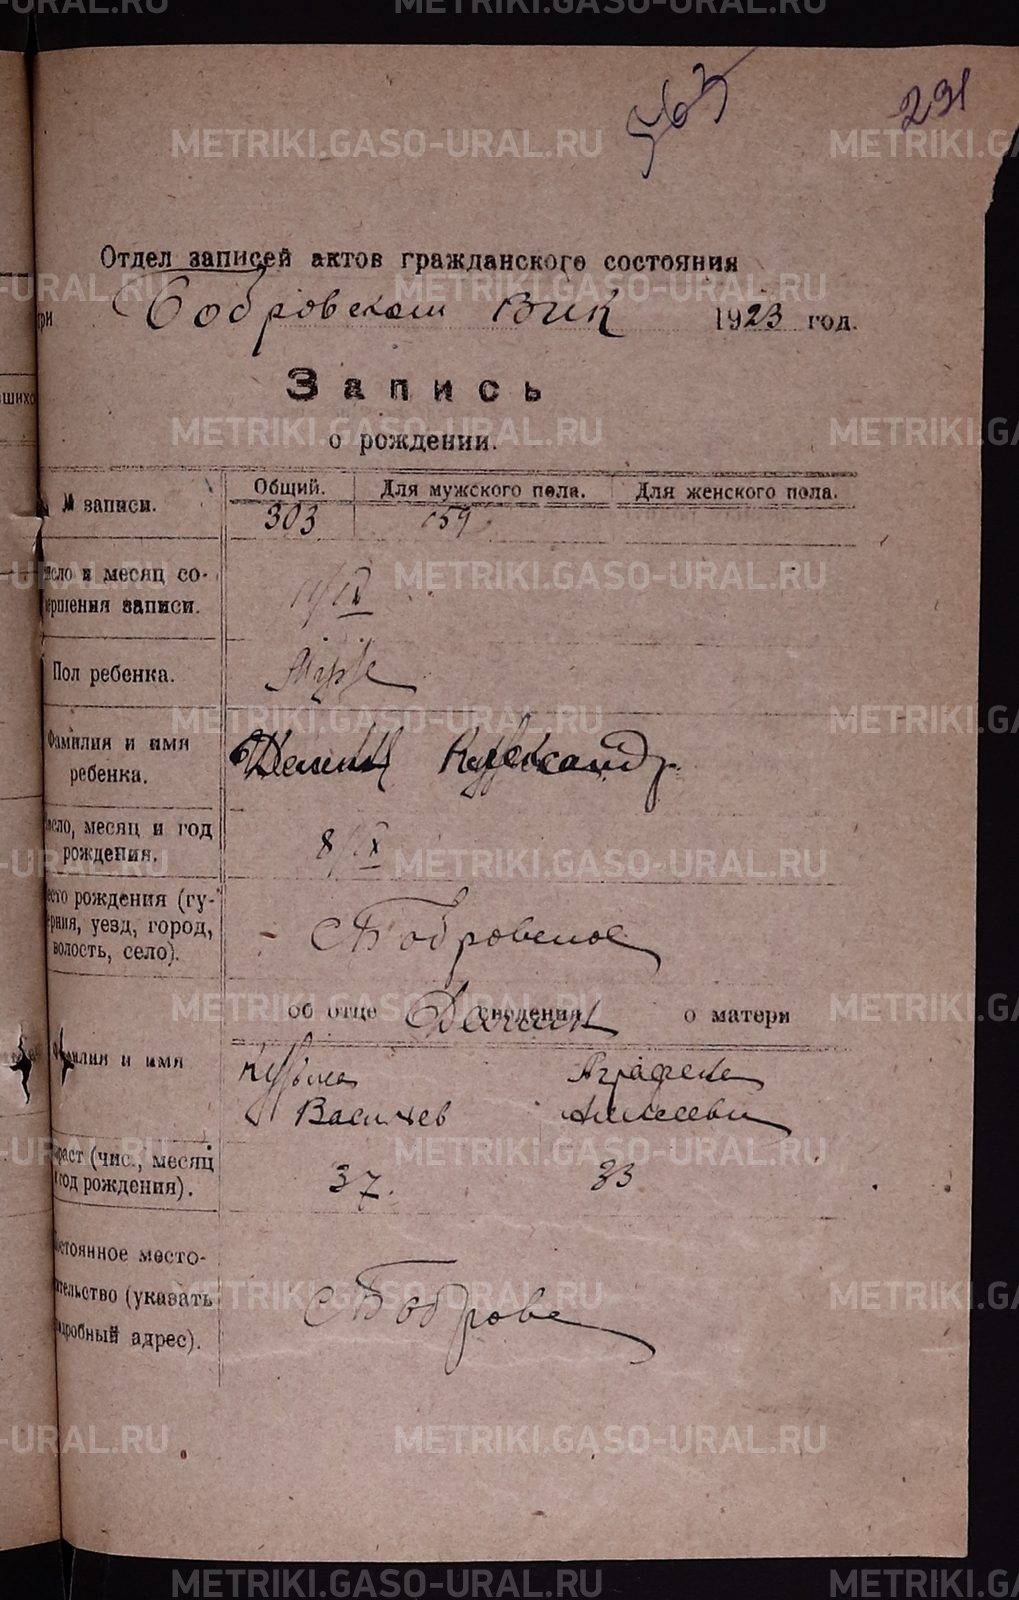 METRIKI.GASO-URAL.RU
563
231
Отдел записей актов гражданского состояния
при Бобровском Вик 1923 год.
Запись
о рождении.
№ записи.
Общий. Для мужского пола. Для женского пола.
303 159
число и месяц со-
вершения записи.
Пол ребенка.
Муж
Фамилия и имя
ребенка.
Александр
число, месяц и год
рождения.
8/IX
место рождения (гу-
рния, уезд, город,
волость, село).
с Бобровское
об отце сведения о матери
Фамилия и имя
Кузьма Аграфена
Васильев Алексеевн
раст (чис., месяц
год рождения).
37. 33
стоянное место-
ительство (указать
одробный адрес).
с Бобровс